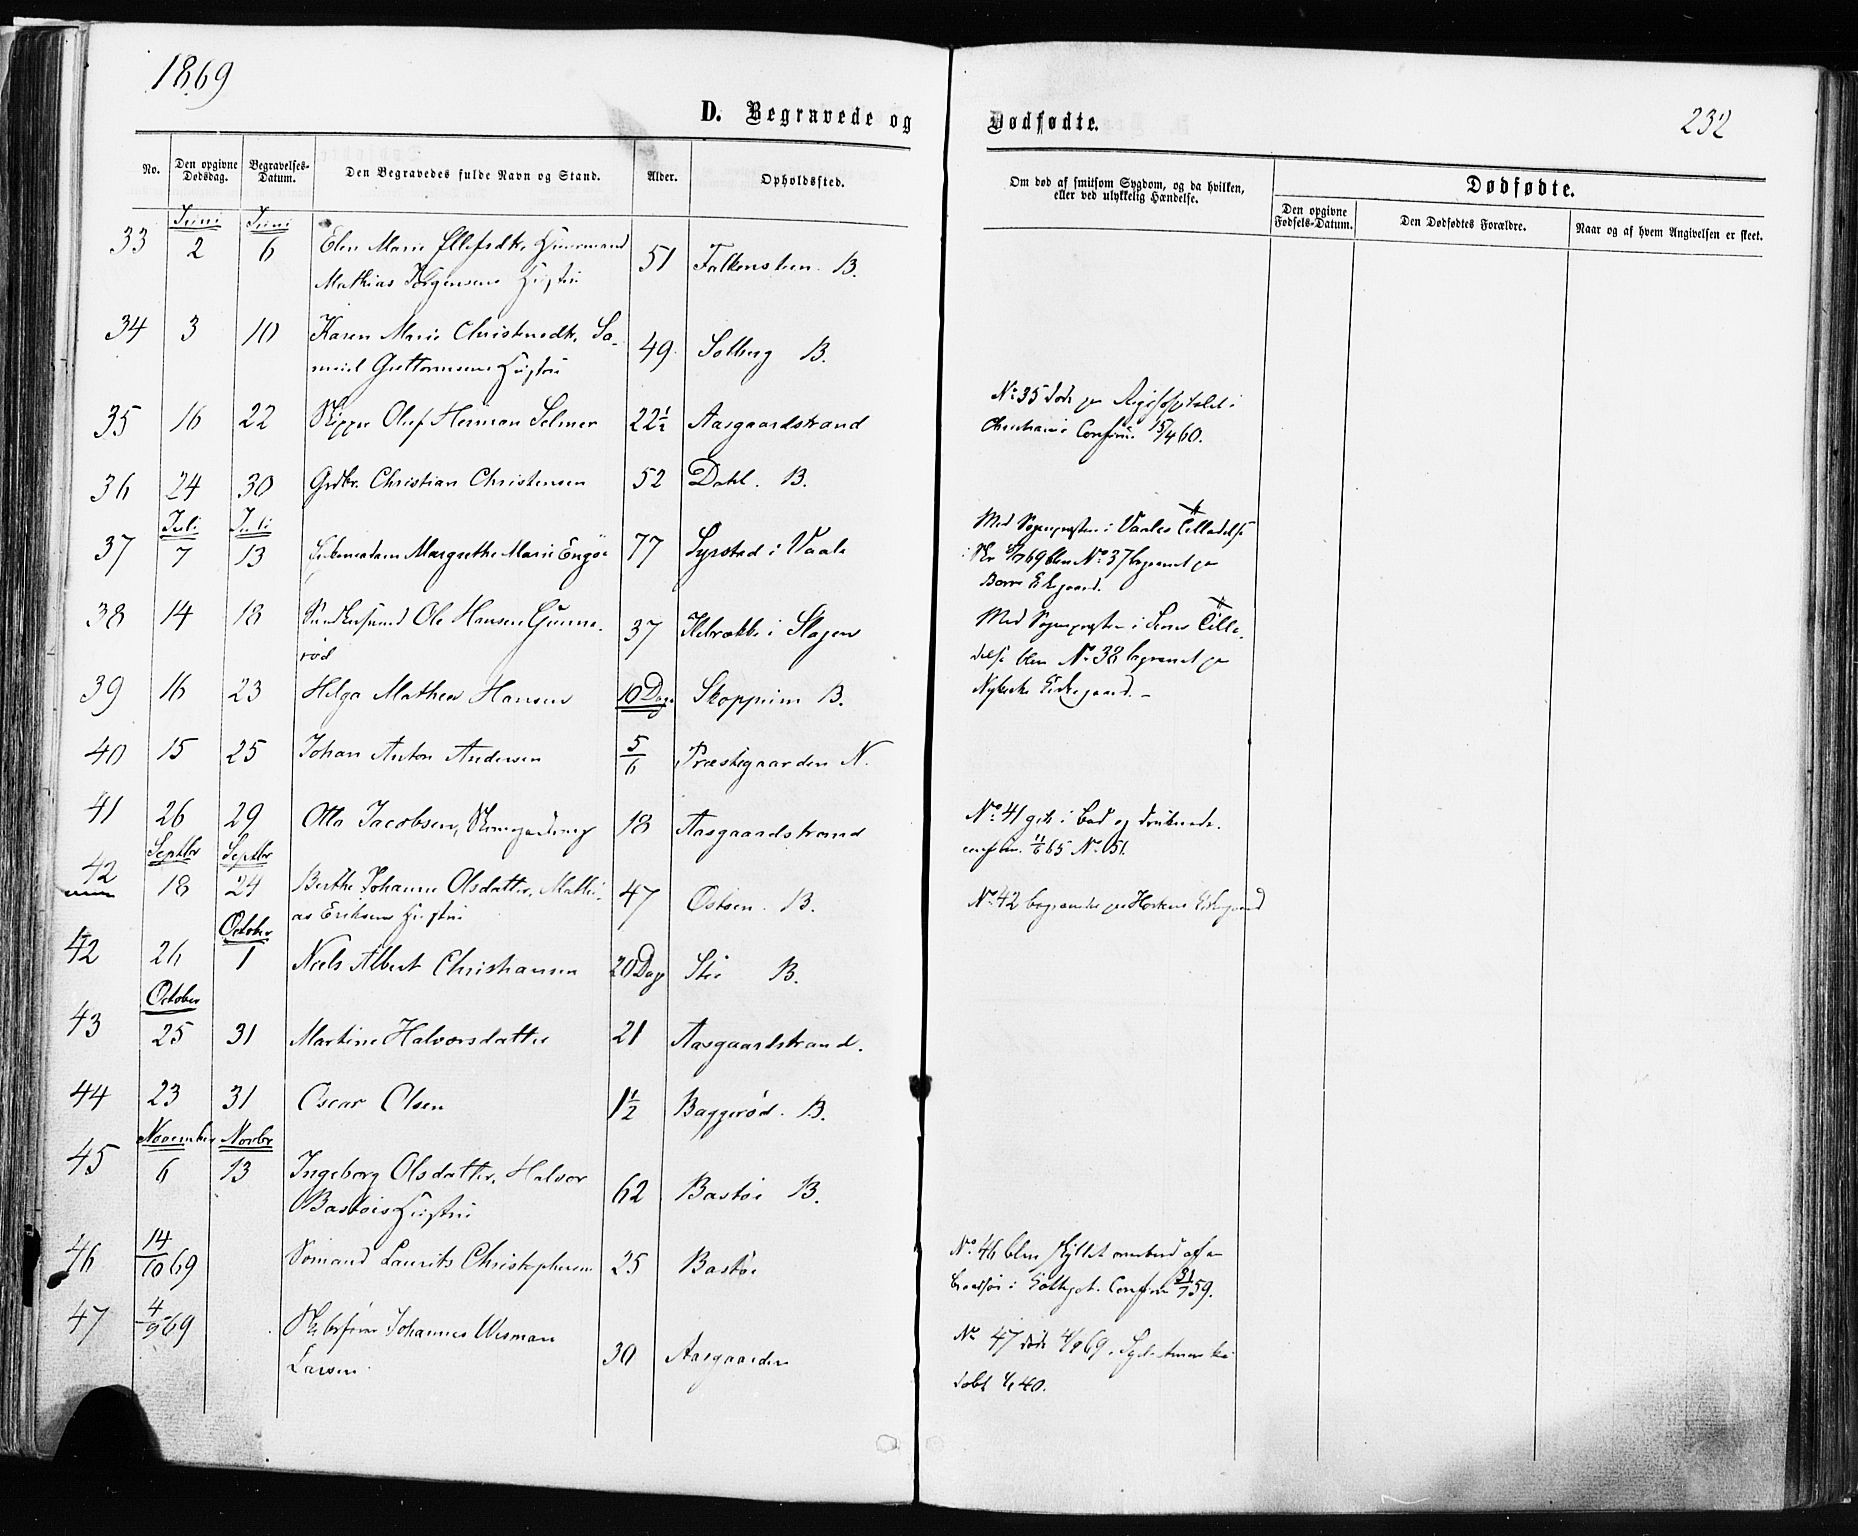 1869
D. Begravede og Dødfødte.
232
No.
Den opgivne Dødsdag.
Begravelses-Datum.
Den Begravedes fulde Navn og Stand.
Alder.
Opholdssted.
Om død af smitsom Sygdom, og da hvilken,
eller ved ulykkelig Hændelse.
Dødfødte.
Den opgivne Fødsels-Datum.
Den Dødfødtes Forældre.
Naar og af hvem Angivelsen er skeet.
Juni Juni
33 2 6 Elen Marie Ellefsdtr. Huusmand 51 Falkensten B.
Mathias Jørgensens Hustru
34 3 10 Karen Marie Christensdtr. Sa- 49 Solberg B.
muel Guttormsens Hustru
35 16 22 Skipper Oluf Herman Selmer 22½ Aasgaardstrand
No 35 døde paa Rigshospitalet i
Christiania Confirm 15/4 60.
36 24 30 Grdbr. Christian Christensen 52 Dahl. B.
Juli Juli
37 7 13 Margrethe Marie Engøe 77 i Vaale
Med Sognepresten i Vaales Tilladelse
69 blev No 37 begravet paa
Borre Kirkegaard.
38 14 18 Ole Hansen Gunne- 37 i Slagen
rød
Med Sognepresten i Sems Tilla-
delse blev No 38 begravet paa
Nykirke Kirkegaard. -
39 16 23 Helga Mathea Hansen 10 Dage Skoppum B.
40 15 25 Johan Anton Andersen 5/6 Præstegaarden N.
41 26 29 Otto Jacobsen, 18 Aasgaardstrand
No 41 gik i Bad og druknede.
65 No 51.
Septbr Septbr
42 18 24 Berthe Johanne Olsdatter, Mathi- 47 Østøen. B.
as Eriksens Hustru
No 42 begravet paa Hortens Kirkegaard
October
42 26 1 Niels Albert Christiansen 20 Dage B.
October
43 25 31 Martine Halvorsdatter 21 Aasgaardstrand.
44 23 31 Oscar Olsen 1½ Baggerød. B.
November Novbr
45 6 13 Ingeborg Olsdatter, Halvor 62 Bastøe B.
Bastøes Hustru
46 14/10 69 Sømand Laurits Christophersen 25 Bastøe
No 46 blev skyllet overbord af en
i Confirm 59.
47 4/9 69 Johannes Wisman 30 Aasgaarden
Larsen.
No 47 døde 4/9 69.
døbt 40.